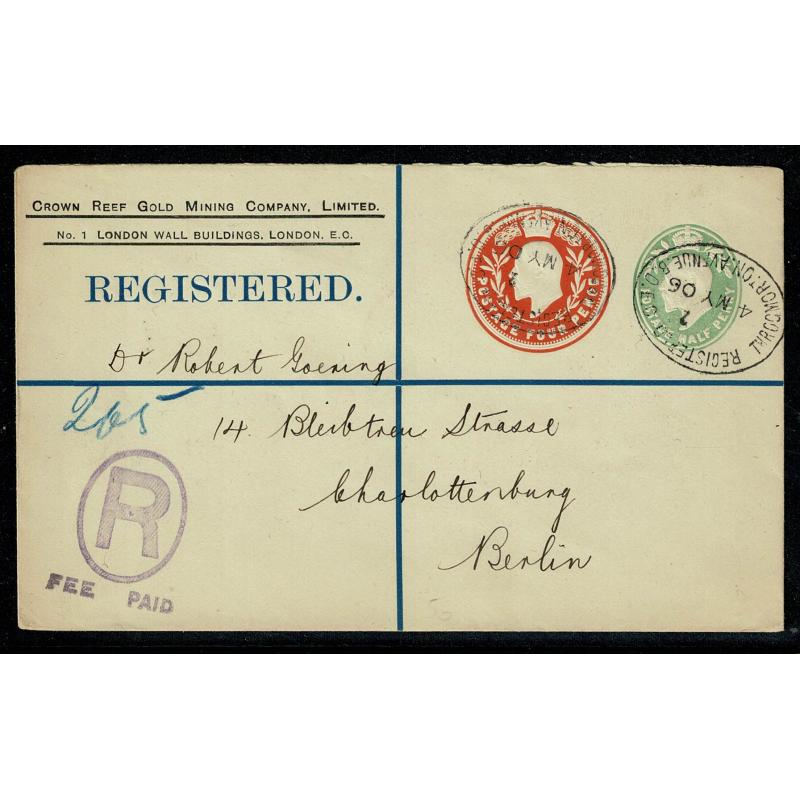 CROWN REEF GOLD MINING COMPANY, LIMITED.
No. 1 LONDON WALL BUILDINGS, LONDON, E.C.
REGISTERED.
POSTAGE FOUR PENCE
HALF PENNY
REGISTERED THROGMORTON AVENUE B.O.
2
4 MY 06
2
4 MY 0
Dr Robert Goering
265
14 Bleibtreu Strasse
Charlottenburg
Berlin
R
FEE PAID